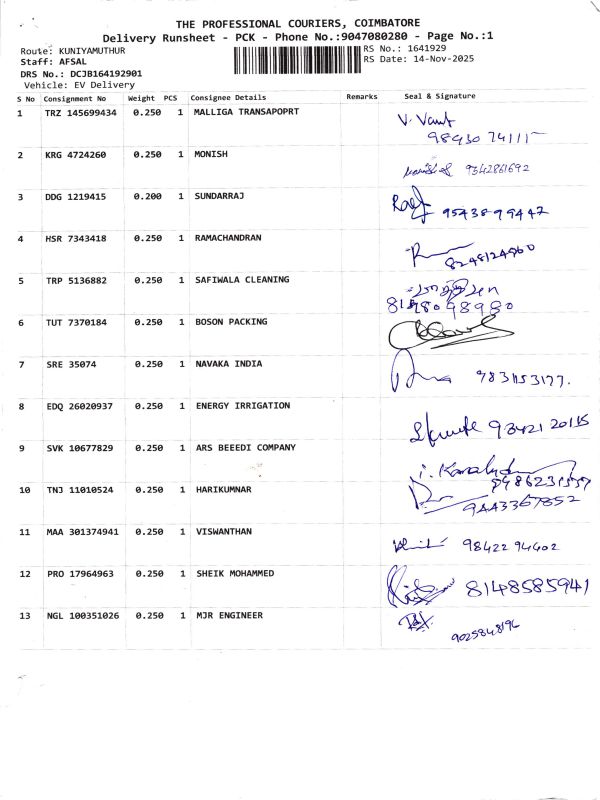 THE PROFESSIONAL COURIERS, COIMBATORE
Delivery Runsheet - PCK - Phone No.:9047080280 - Page No.:1
Route: KUNIYAMUTHUR
RS No.: 1641929
Staff: AFSAL
RS Date: 14-Nov-2025
DRS No.: DCJB164192901
Vehicle: EV Delivery
S No Consignment No Weight PCS Consignee Details Remarks Seal & Signature
1 TRZ 145699434 0.250 1 MALLIGA TRANSAPOPRT V. Vant
98430 74115
2 KRG 4724260 0.250 1 MONISH 9342861692
3 DDG 1219415 0.200 1 SUNDARRAJ 9543899442
4 HSR 7343418 0.250 1 RAMACHANDRAN
8248124960
5 TRP 5136882 0.250 1 SAFIWALA CLEANING
81480 98980
6 TUT 7370184 0.250 1 BOSON PACKING
7 SRE 35074 0.250 1 NAVAKA INDIA
8 EDQ 26020937 0.250 1 ENERGY IRRIGATION 93421 20115
9 SVK 10677829 0.250 1 ARS BEEEDI COMPANY
10 TNJ 11010524 0.250 1 HARIKUMNAR
9443367852
11 MAA 301374941 0.250 1 VISWANTHAN 98422 94402
12 PRO 17964963 0.250 1 SHEIK MOHAMMED 8148585941
13 NGL 100351026 0.250 1 MJR ENGINEER
9025848196